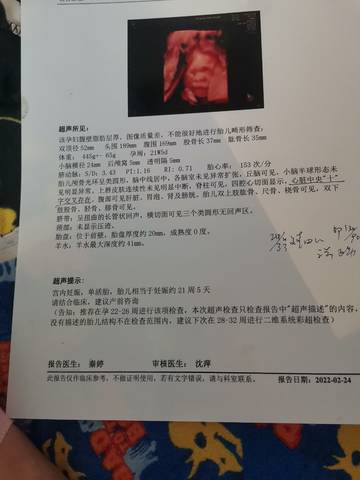 超声所见:
该孕妇腹壁脂肪层厚，图像质量差，不能很好地进行胎儿畸形筛查:
双顶径52mm 头围199mm 腹围169mm 股骨长37mm 肱骨长35mm
体重: 445g+- 65g 孕周: 21W5d
小脑横径24mm 后颅窝5mm 透明隔5mm
脐动脉: S/D: 3.43 PI:1.16 RI: 0.71 胎心率: 153 次/分
胎儿颅骨光环呈类圆形，脑中线居中，各脑室未见异常扩张，丘脑可见，小脑半球形态未
见明显异常，上唇皮肤连续性未见明显中断，脊柱可见，四腔心切面显示，心脏中央"十"
字交叉存在，腹部可见肝脏、胃泡、肾及膀胱，胎儿双上肢肱骨、尺骨、桡骨可见，双下
肢股骨、胫骨、腓骨可见。
脐带: 呈扭曲的长管状回声，横切面可见三个类圆形无回声区。
颈部: 未显示压迹。
胎盘: 位于前壁，胎盘厚度约20mm，成熟度 0 度。
羊水: 羊水最大深度约41mm。
超声提示:
宫内妊娠，单活胎，胎儿相当于妊娠约 21 周 5 天
请结合临床，建议产前咨询
(告知: 推荐在孕 22-26 周进行该项检查，本次超声检查只检查报告中"超声描述"的内容，
没有描述的胎儿结构不在检查范围内，建议下次在 28-32 周进行二维系统彩超检查)
报告医生: 秦婷 审核医生: 沈萍
此报告仅作临床参考，不做证明使用，若有文字错误，请与科室联系。 报告日期:2022-02-24